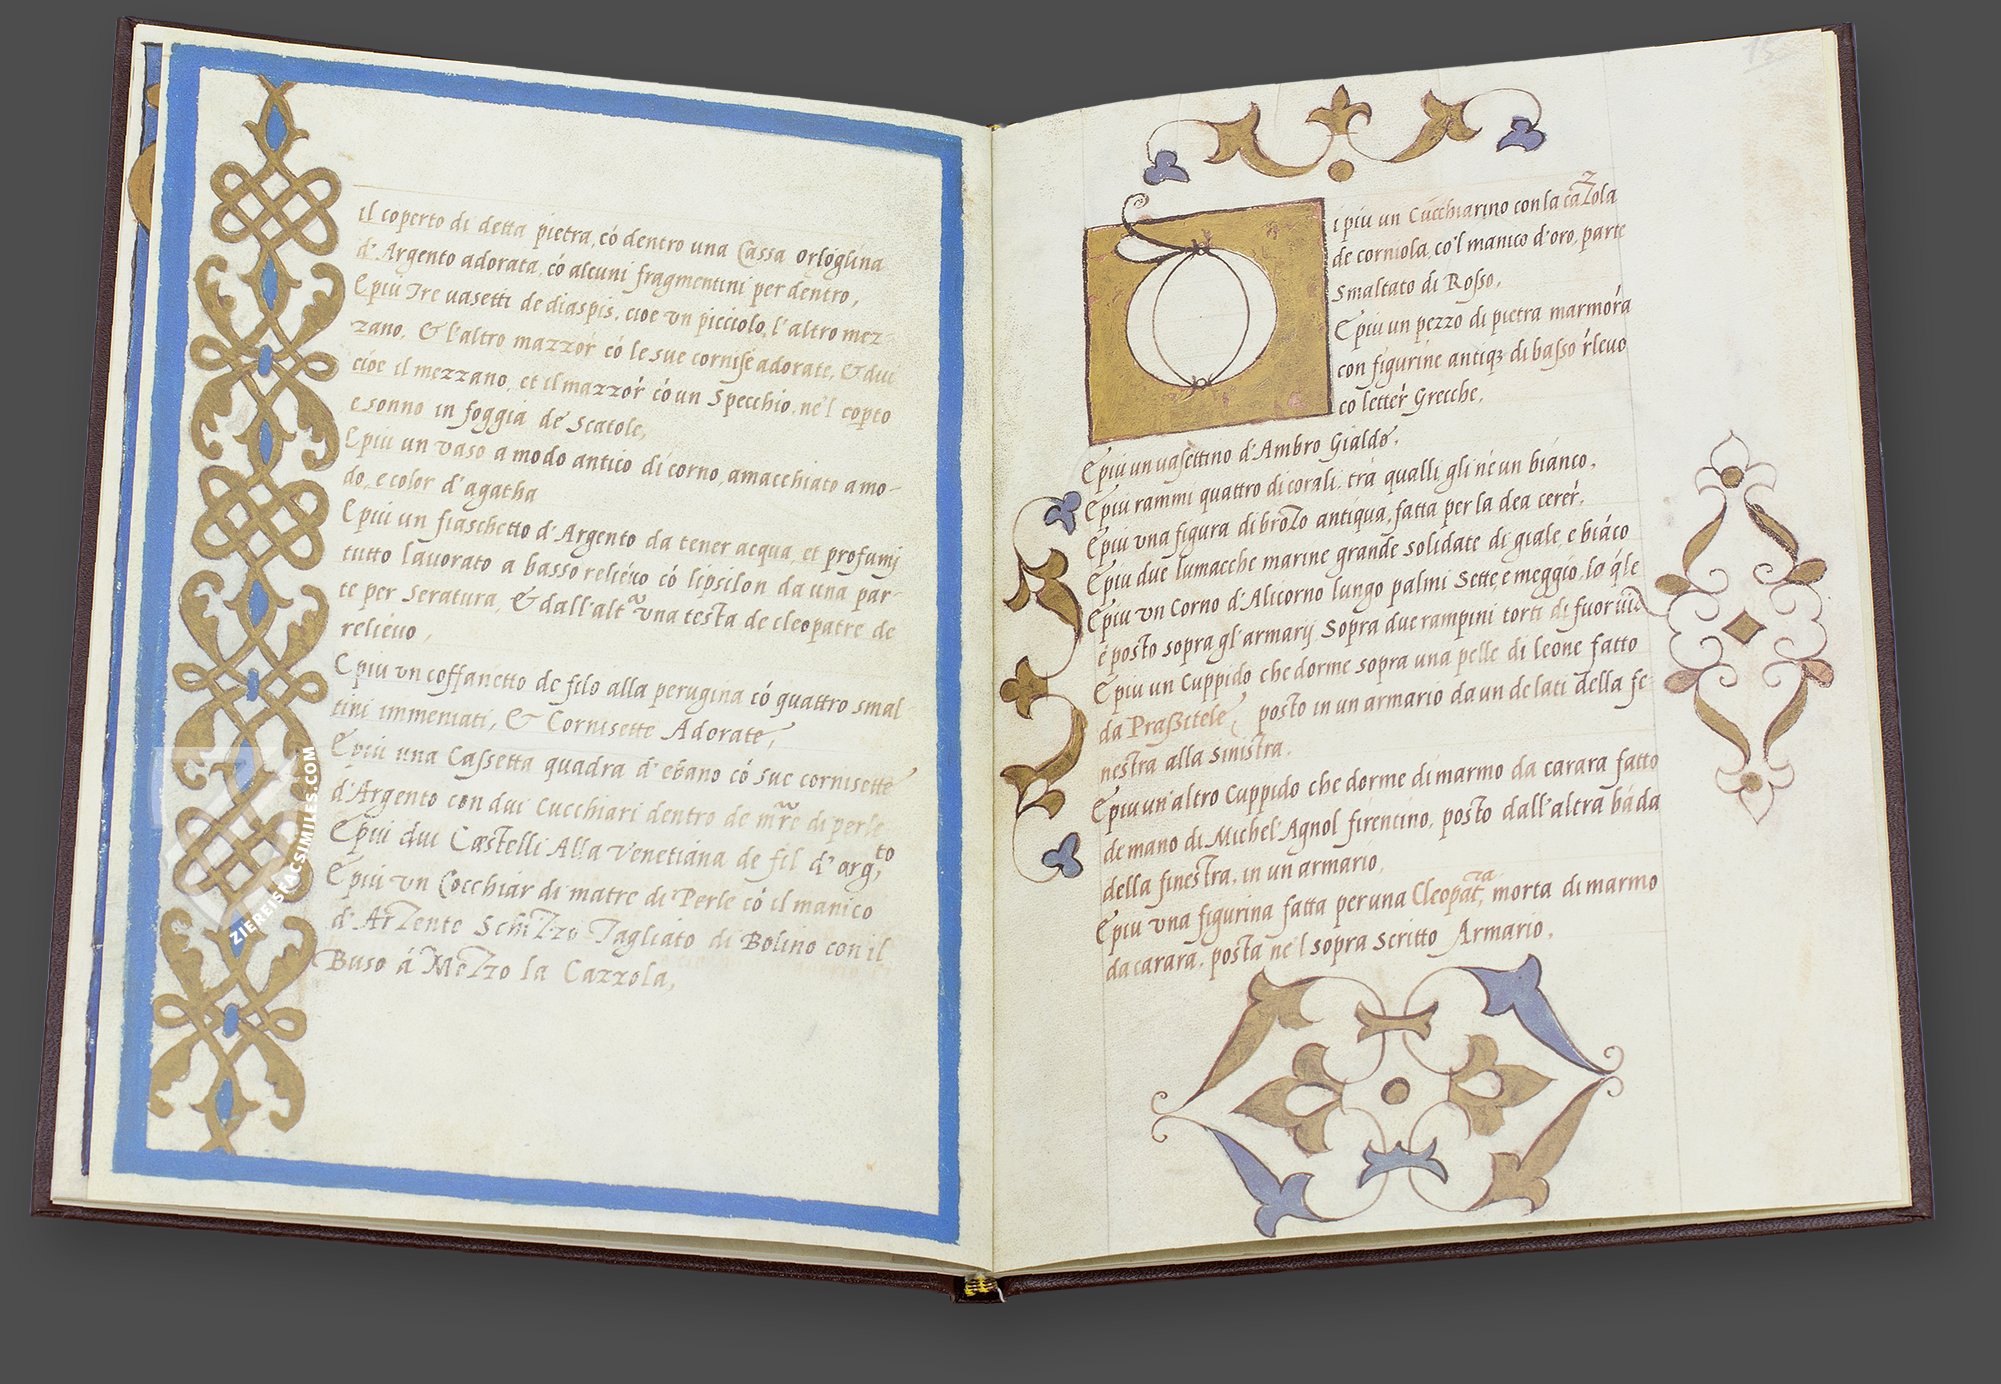 il coperto di detta pietra, có dentro una Cassa orlogiina
d'Argento adorata, có alcuni fragmentini per dentro,
E piu Tre uasetti de diaspis, cioe vn picciolo, l'altro mez-
zano, & l'altro mazzor có le sue cornise adorate, & due
cioe il mezzano, et il mazzor có un Specchio, ne'l copto
e sonno in foggia de Scatole,
E piu un vaso a modo antico di corno, amacchiato a mo-
do, e color d'agatha
E piu un fiaschetto d'Argento da tener acqua, et profumj
tutto lauorato a basso relieuo có lipsilon da una par-
te per Seratura, & dall'altra vna testa de cleopatre de
relieuo,
E piu vn coffanetto de filo alla perugina có quattro smal-
tini immeniati, & Cornisette Adorate,
E piu una Cassetta quadra d'ebano có sue cornisette
d'Argento con dui Cucchiari dentro de mre di perle
E piu dui Castelli Alla Venetiana de fil d'argto,
E piu vn Cocchiar di matre di Perle có il manico
d'ArZento SchiZzo Tagliato di Bolino con il
Buso á MeZzo la Cazzola,
15
D i piu un Cucchiarino con la cazZola
de corniola, co'l manico d'oro, parte
Smaltato di Rosso,
E piu un pezzo di pietra marmora
con figurine antiqȝ di basso rleuo
co letter Grecche,
E piu un uasettino d'Ambro Gialdo,
E piu rammi quattro di corali, trá qualli gli né un biánco,
E piu vna figura di broZo antiqua, fatta per la dea cerer,
E piu due lumacche marine grande solidate di giale, e biáco
E piu vn Corno d'Alicorno lungo palmi Sette, e meggio, lo qle
é posto sopra gl'armarij Sopra due rampini torti di fuoruia
E piu un Cuppido che dorme sopra una pelle di leone fatto
da Praßitele, posto in un armario da un de lati della fe-
nestra alla sinistra.
E piu un'altro Cuppido che dorme di marmo da carara fatto
de mano di Michel'Agnol firentino, posto dall'altra báda
della finestra, in un armario,
E piu vna figurina fatta per una Cleopatra, morta di marmo
da carara, posta ne'l sopra scritto Armario,
ZIEREIS FACSIMILES.COM